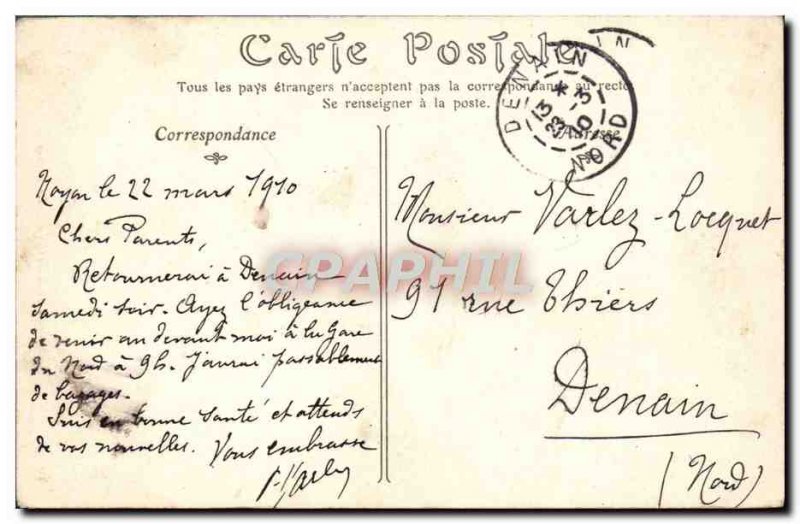 Carte Postale
Tous les pays étrangers n'acceptent pas la correspondance au recto
Se renseigner à la poste.
DENAIN
NORD
13 * 
23 - 3
10
Correspondance
Adresse
Noyon le 22 mars 1910
Chers Parents,
Retournerai à Denain
samedi soir. Ayez l'obligeance
de venir au devant moi à la Gare
du Nord à 9h. J'aurai passablement
de bagages.
Suis en bonne santé et attends
de vos nouvelles. Vous embrasse
Monsieur Varlez-Locquet
91 rue Thiers
Denain
(Nord)
CPAPHIL